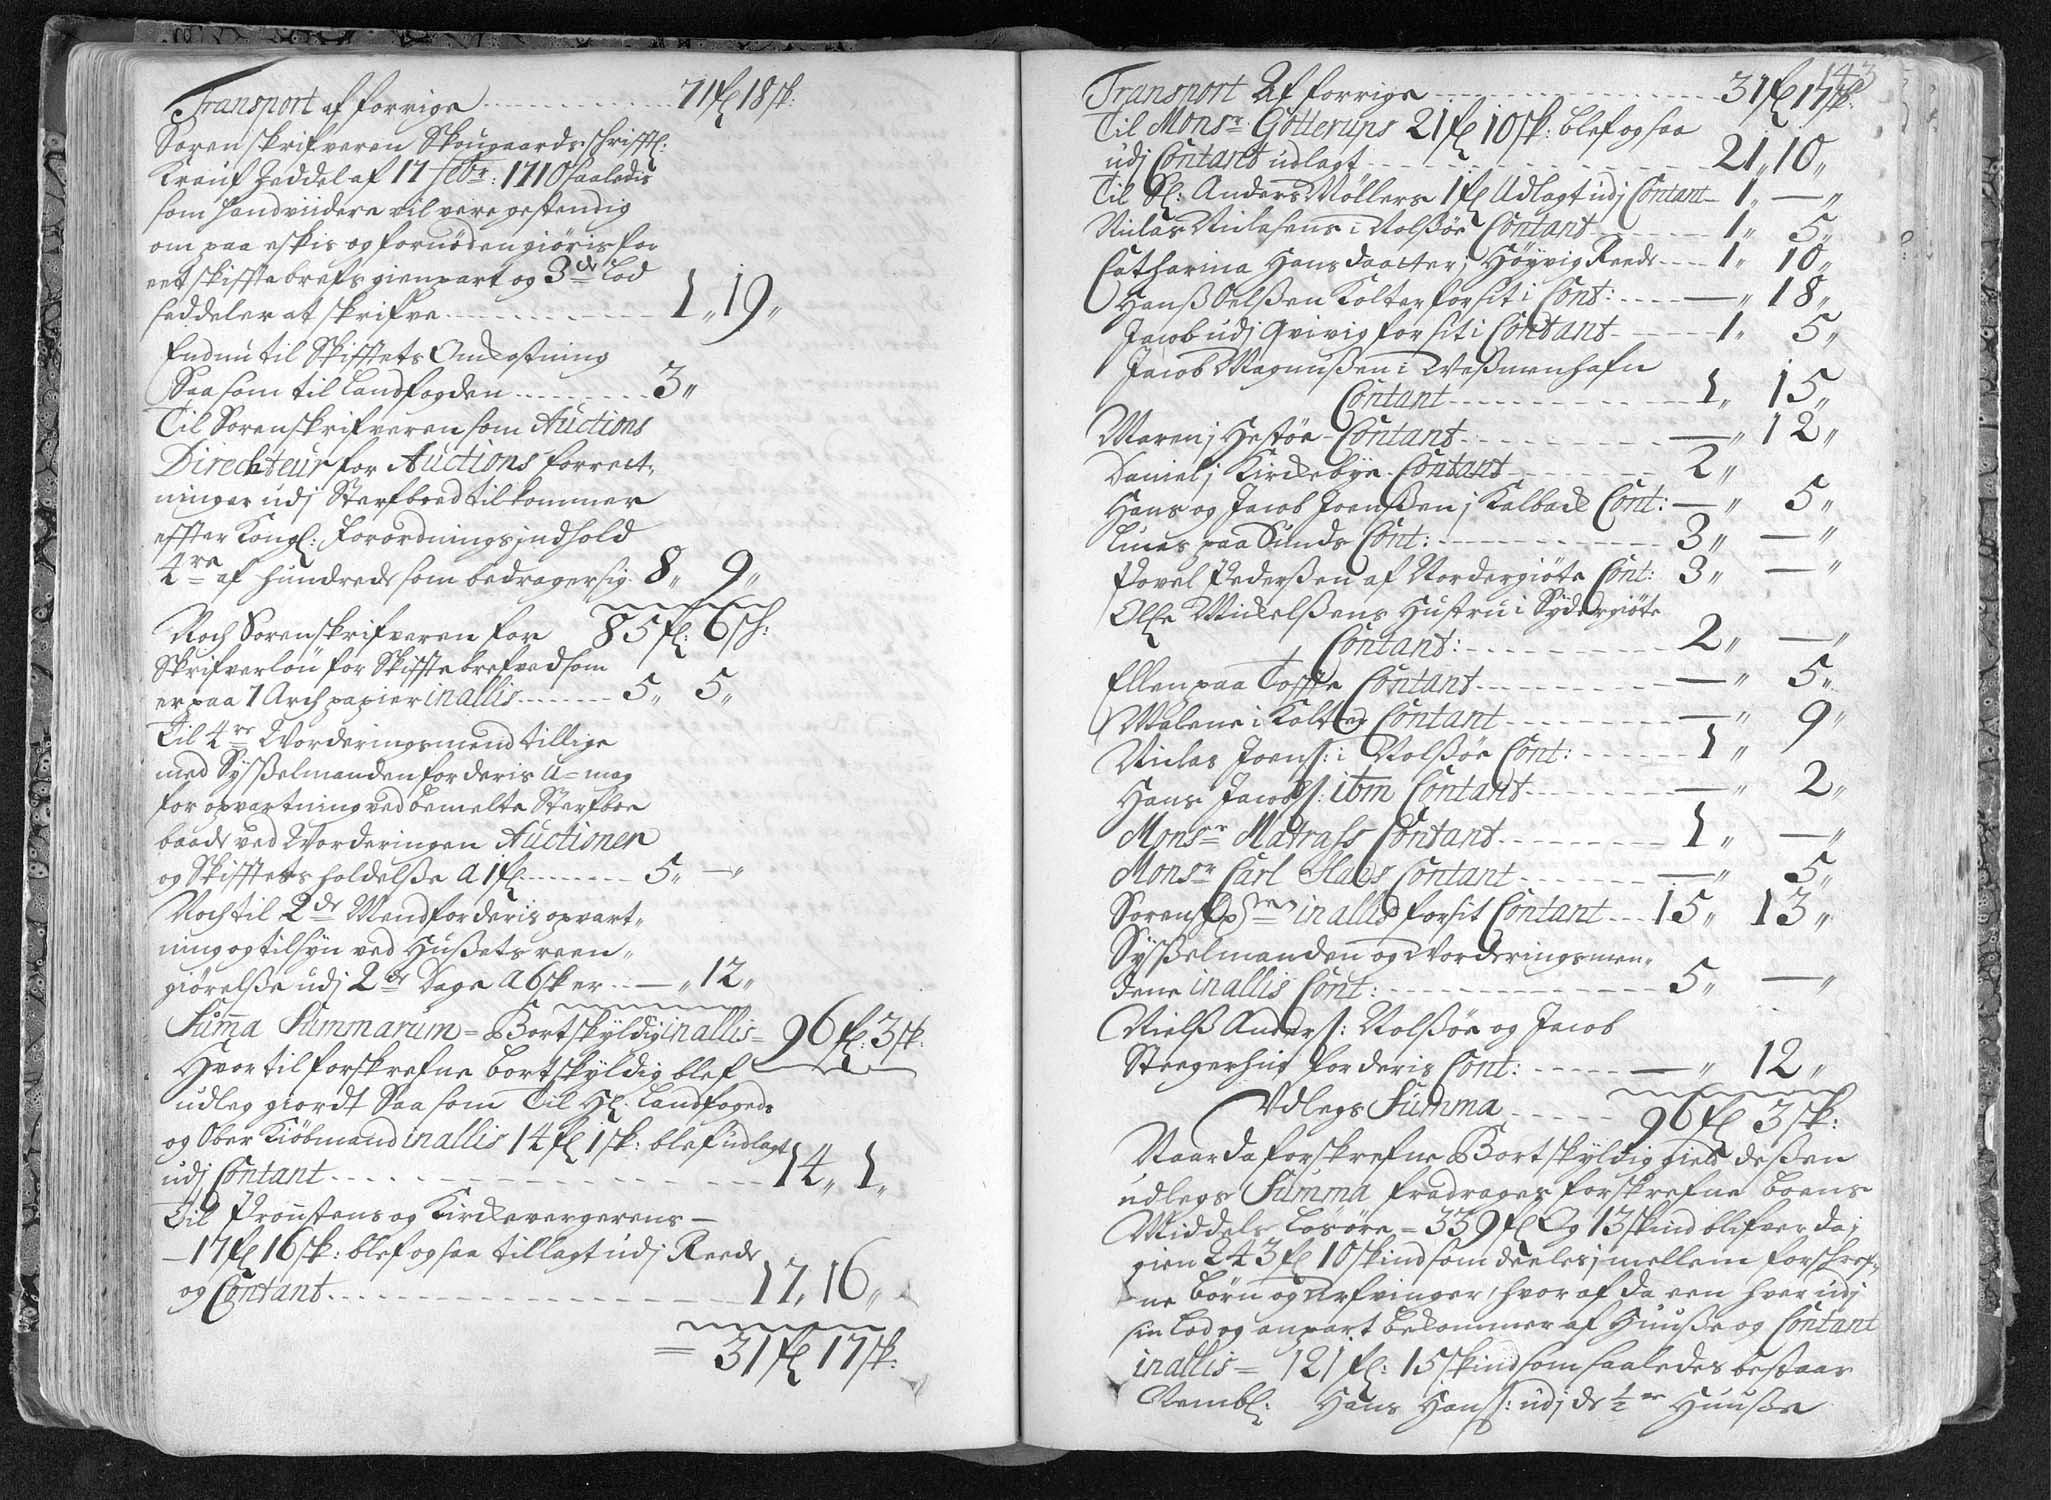 Transport af forrige 71 fl 18 sk:
Sorenskrifveren Skougaards schrifftl:
Krauf Zeddel af 17 febr: 1710 saaledis
som hand viidere vil vere gestendig
om paa eskis og fornöden giöris for
eet skiffte brefs gienpart og 3de Lod
seddeler at skrifve 1 „ 19 „
Endnu til Skifftets Omkostning
Saasom til Landfogden 3 „
Til Sorenskrifveren som Auctions
Directeur for Auctions forret„
ninger udj Sterfboed tilkommer
effter Kongl: Forordnings jndhold
4re af hundrede som bedrager sig 8 „ 9 „
85 fl: 6 sh:
Noch Sorenskrifveren for
Skrifverlön for Skifftebrefved som
er paa 1 Arch papier in allis 5 „ 5 „
Til 4re Vorderingsmend tillige
med Sysselmanden for deris u=mag
for opvartning ved bemelte Sterfboe
baade ved Vorderingen Auctionen
og Skifftets holdelße a 1 fl 5 „ — „
Noch til 2de Mend for deris opvart„
ning og tilsyn ved Hußets reen„
giörelße udj 2de Dage a 6 sk er — „ 12 „
Summa Summarum = Bortskyldig in allis = 96 fl: 3 sk:
Hvortil forskrefne bortskyldig blef
udleg giordt Saasom Til Hl. Landfogeds
og Ober Kiöbmand in allis 14 fl 1 sk: blef udlagt
udj Contant 14 „ 1 „
Til Provstens og Kirkevergerens —
— 17 fl 16 sk: blef ogsaa tillagt udj Reede
og Contant 17, 16 „
= 31 fl 17 sk:
143
Transport Af forrige 31 fl 17 sk:
Til Monsr Götterups 21 fl 10 sk: blef ogsaa
udj Contant udlagt 21 „ 10 „
Til Sl: Anders Möllers 1 fl Udlagt udj Contant 1 „ — „
Niclas Niclasens i Nolßöe Contant 1 „ 5 „
Catharina Hans daatter j Höyvig Reede 1 „ 10 „
Hanß Oelßen Kolter for sit i Cont: — „ 18 „
Jacob udj Qvivig for sit i Contant 1 „ 5 „
Jacob Magnußen i Weßmenhafn
Contant 1 „ 15 „
Maren j Hestöe Contant — „ 12 „
Daniel j Kirckebye Contant 2 „
Hans og Jacob Joenßen j Kalback Cont: — „ 5 „
Lucas paa Sunds Cont: 3 „ — „
Povel Pederßen af Nordergiöte Cont: 3 „ — „
Olle Mickelßens Hustru i Sydergiöte
Contant: 2 „ — „
Ellen paa Toffte Contant — „ 5 „
Malene i Kolter Contant — „ 9 „
Niclas Joens: i Nolßöe Cont: 1 „
Hans Jacobs: ibm Contant — „ 2 „
Monsr Matrass Contant 1 „ — „
Monsr Carl Hans Contant — „ 5 „
in allis for sit Contant 15 „ 13 „
Sysselmanden og Vorderingsmen„
dene in allis Cont: 5 „ — „
Nielß Anders: Nolßöe og Jacob
Steegerhus for deris Cont: — „ 12 „
Udlegs Summa 96 fl 3 sk:
Naar da forskrefne Bortskyldig gield deßen
udlegs Summa fradrages forskrefne boens
Middels Lösöre = 339 fl Og 13 skind blifver da j
gien 243 fl 10 skind som deeles jmellem forskref„
ne börn og arfvinger, hvor af da een hver udj
sin Lod og anpart bekommer af Huuße og Contant
in allis = 121 fl: 15 skind som saaledes bestaar
Nembl: Hans Hans: udj de ½ er Huuße